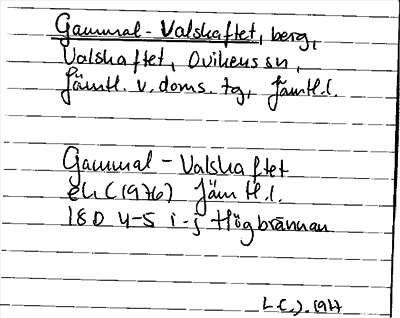 Gammal-Valshaftet, berg,
Valshaftet, Ovikens sn,
Jämtl. v. doms. tg, Jämtl.l.
Gammal-Valshaftet
EK (1976) Jämtl.l.
18D 4-5 i-j Högbrännan